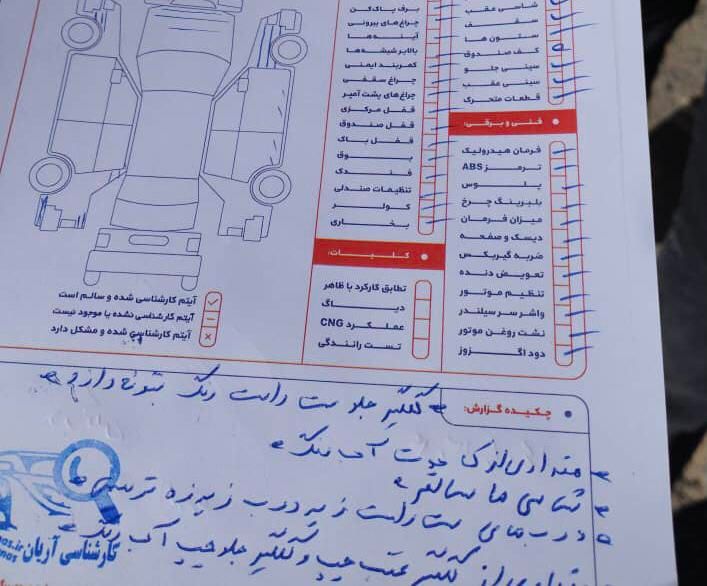 شاسی عقب
سقف
ستون ها
کف صندوق
سینی جلو
سینی عقب
قطعات متحرک
فنی و برقی:
فرمان هیدرولیک
ترمز ABS
پلوس
بلبرینگ چرخ
میزان فرمان
دیسک و صفحه
ضربه گیربکس
تعویض دنده
تنظیم موتور
واشر سر سیلندر
نشت روغن موتور
دود اگزوز
برف پاک کن
چراغ های بیرونی
آینه ها
بالابر شیشه ها
کمربند ایمنی
چراغ سقفی
چراغ های پشت آمپر
قفل مرکزی
قفل صندوق
قفل باک
بوق
فندک
تنظیمات صندلی
کولر
بخاری
کلیات:
تطابق کارکرد با ظاهر
دیاگ
عملکرد CNG
تست رانندگی
آیتم کارشناسی شده و سالم است
آیتم کارشناسی نشده یا موجود نیست
آیتم کارشناسی شده و مشکل دارد
چکیده گزارش:
گلگیر جلو سمت راست رنگ بتونه دارد
مقداری از کاپوت آب رنگ
شاسی ها سالم
درب های سمت راست زیر درب زیر زه
مقداری از گلگیر عقب چپ و گلگیر جلو چپ آب رنگ
کارشناسی آریان